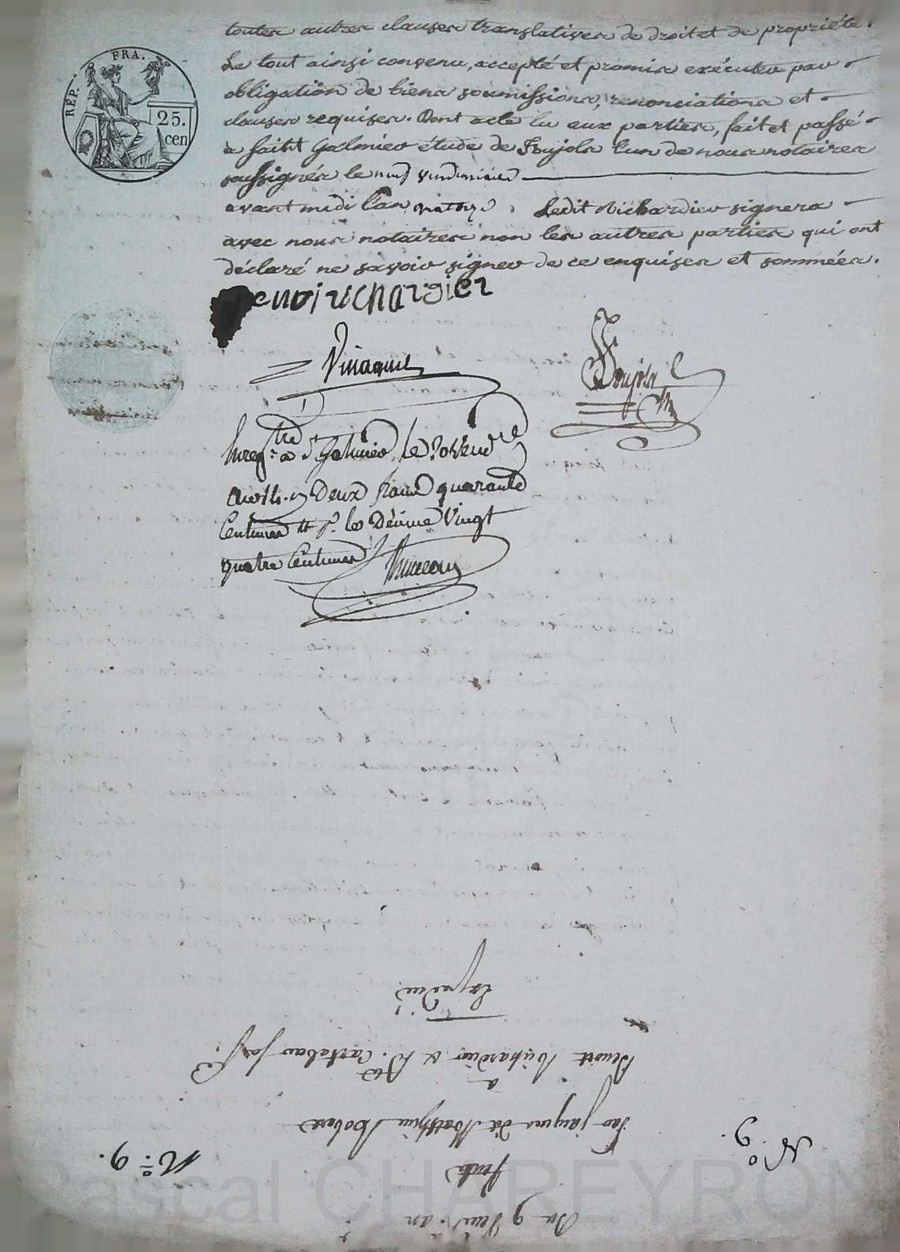 RÉP. FRA.
25.
cen
toutes autres clauses translatives de droit et de propriété.
Le tout ainsi convenu, accepté et promis exécuter par
obligation de biens soumissions, renonciations et
clauses requises. Dont acte lu aux parties, fait et passé
a saint Galmier étude de Poujols l'un de nous notaires
soussignés le neuf vendemiaire
avant midi l'an quatorze, Ledit Richardier signera
avec nous notaires non les autres parties qui ont
déclaré ne savoir signer de ce enquises et sommées.
Benoit richardier
Poujols
Enreg.tré a St Galmier, le
Deux francs quarante
Centimes et p.r le Décime Vingt
quatre Centimes
Expédié
Benoit Richardier &
à
N.o 9.
N.o 9.
Pascal CHAREYRON